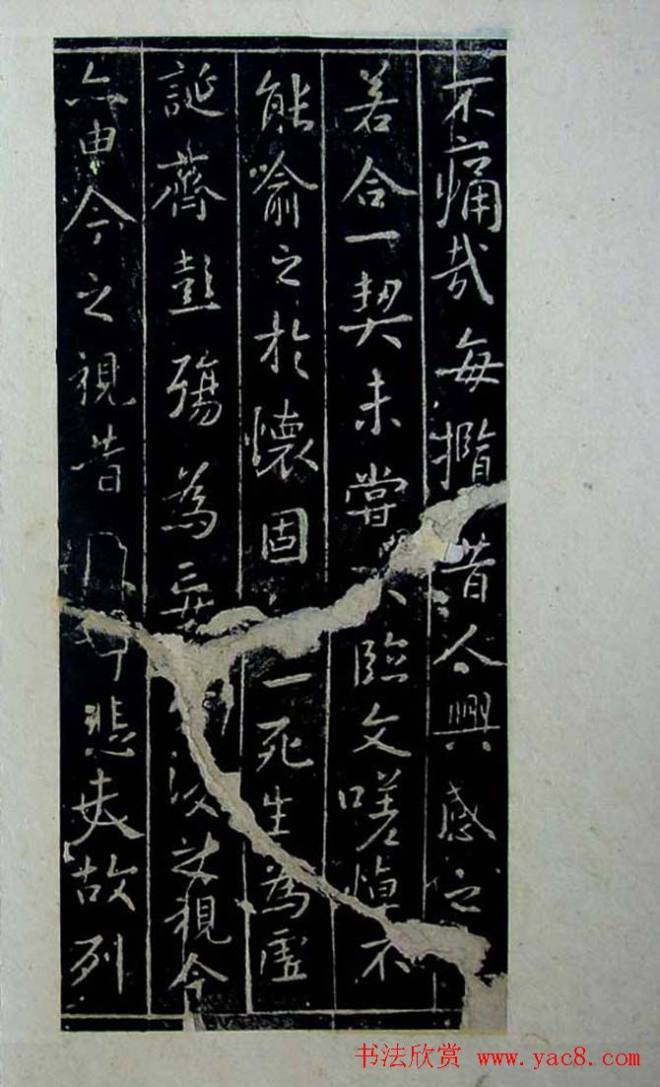 不痛哉每攬昔人興感之
若合一契未嘗不臨文嗟悼不
能喻之於懷固一死生為虛
誕齊彭殤為妄後之視今
亦由今之視昔悲夫故列
书法欣赏 www.yac8.com